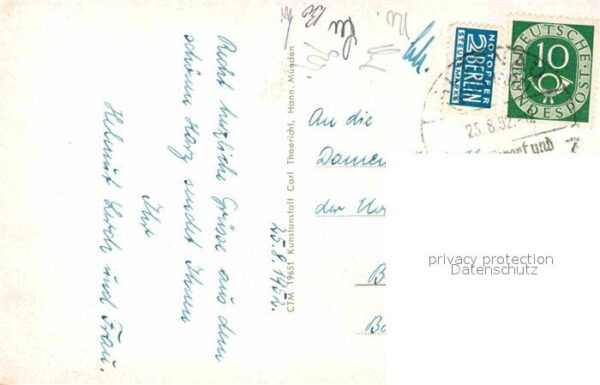 Recht herzliche Grüße aus dem
schönen Harz sendet Ihnen
Ihr
Helmut und Frau.
25.8.1952.
CTM 19651 Kunstanstalt Carl Thoericht, Hann. Münden
An die
Damen
der
NOTOPFER
2 BERLIN
STEUERMARKE
DEUTSCHE
10
BUNDESPOST
25.8.52
und
privacy protection
Datenschutz